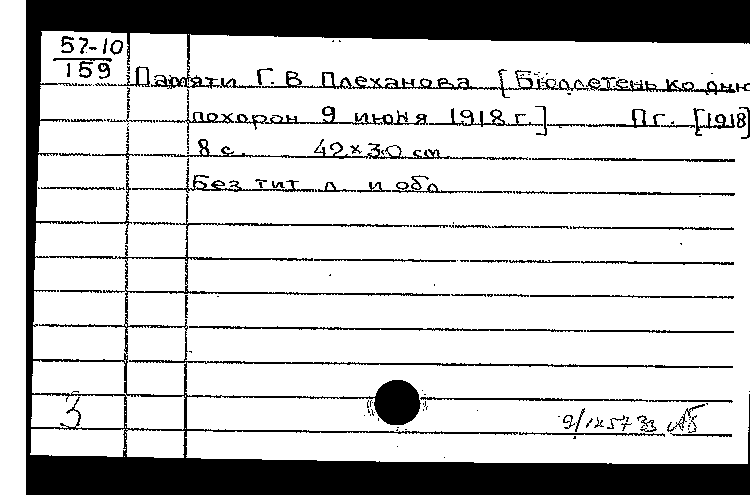 57-10
159
Памяти Г. В. Плеханова [Бюллетень ко дню
похорон 9 июня 1918 г.] Пг. [1918]
8 с. 42×30 см.
Без тит. л. и обл.
3